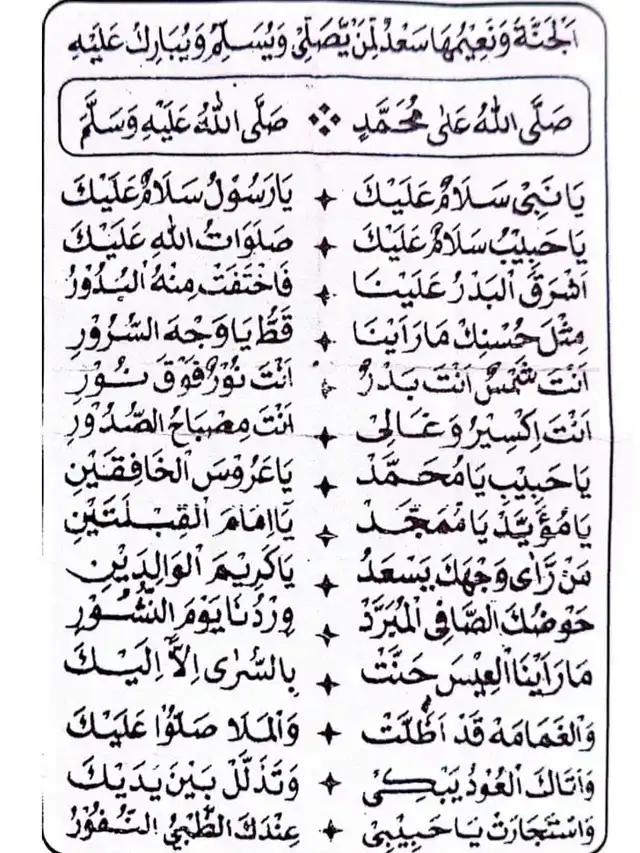 اَلْجَنَّةُ وَنَعِيْمُهَا سَعْدٌ لِمَنْ يُّصَلِّيْ وَيُسَلِّمُ وَيُبَارِكُ عَلَيْهِ
صَلَّى اللهُ عَلٰى مُحَمَّدٍ صَلَّى اللهُ عَلَيْهِ وَسَلَّمَ
يَا نَبِيْ سَلَامٌ عَلَيْكَ ✦ يَا رَسُوْلُ سَلَامٌ عَلَيْكَ
يَا حَبِيْبُ سَلَامٌ عَلَيْكَ ✦ صَلَوَاتُ اللهِ عَلَيْكَ
اَشْرَقَ الْبَدْرُ عَلَيْنَا ✦ فَاخْتَفَتْ مِنْهُ الْبُدُوْرُ
مِثْلَ حُسْنِكْ مَا رَاَيْنَا ✦ قَطُّ يَا وَجْهَ السُّرُوْرِ
اَنْتَ شَمْسٌ اَنْتَ بَدْرٌ ✦ اَنْتَ نُوْرٌ فَوْقَ نُوْرِ
اَنْتَ اِكْسِيْرُ وَغَالِيْ ✦ اَنْتَ مِصْبَاحُ الصُّدُوْرِ
يَا حَبِيْبِ يَا مُحَمَّدْ ✦ يَا عَرُوْسَ الْخَافِقَيْنِ
يَا مُؤَيَّدْ يَا مُمَجَّدْ ✦ يَا اِمَامَ الْقِبْلَتَيْنِ
مَنْ رَّاٰى وَجْهَكَ يَسْعَدُ ✦ يَا كَرِيْمَ الْوَالِدَيْنِ
حَوْضُكَ الصَّافِى الْمُبَرَّدْ ✦ وِرْدُنَا يَوْمَ النُّشُوْرِ
مَا رَاَيْنَا الْعِيْسَ حَنَّتْ ✦ بِالسُّرٰى اِلَّا اِلَيْكَ
وَالْغَمَامَهْ قَدْ اَظَلَّتْ ✦ وَالْمَلَا صَلُّوْا عَلَيْكَ
وَاَتَاكَ الْعُوْدُ يَبْكِيْ ✦ وَتَذَلَّلْ بَيْنَ يَدَيْكَ
وَاسْتَجَارَتْ يَا حَبِيْبِيْ ✦ عِنْدَكَ الظَّبْيُ النُّفُوْرُ